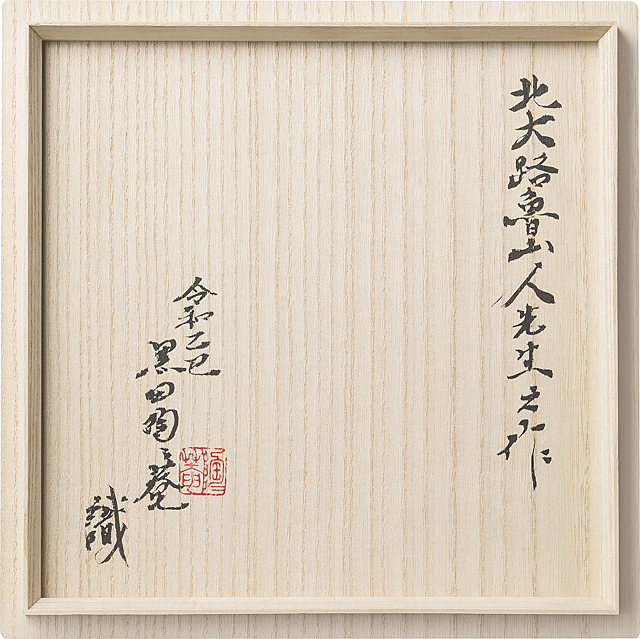 北大路魯山人先生之作
令和乙巳
黒田陶々菴
識
陶菴